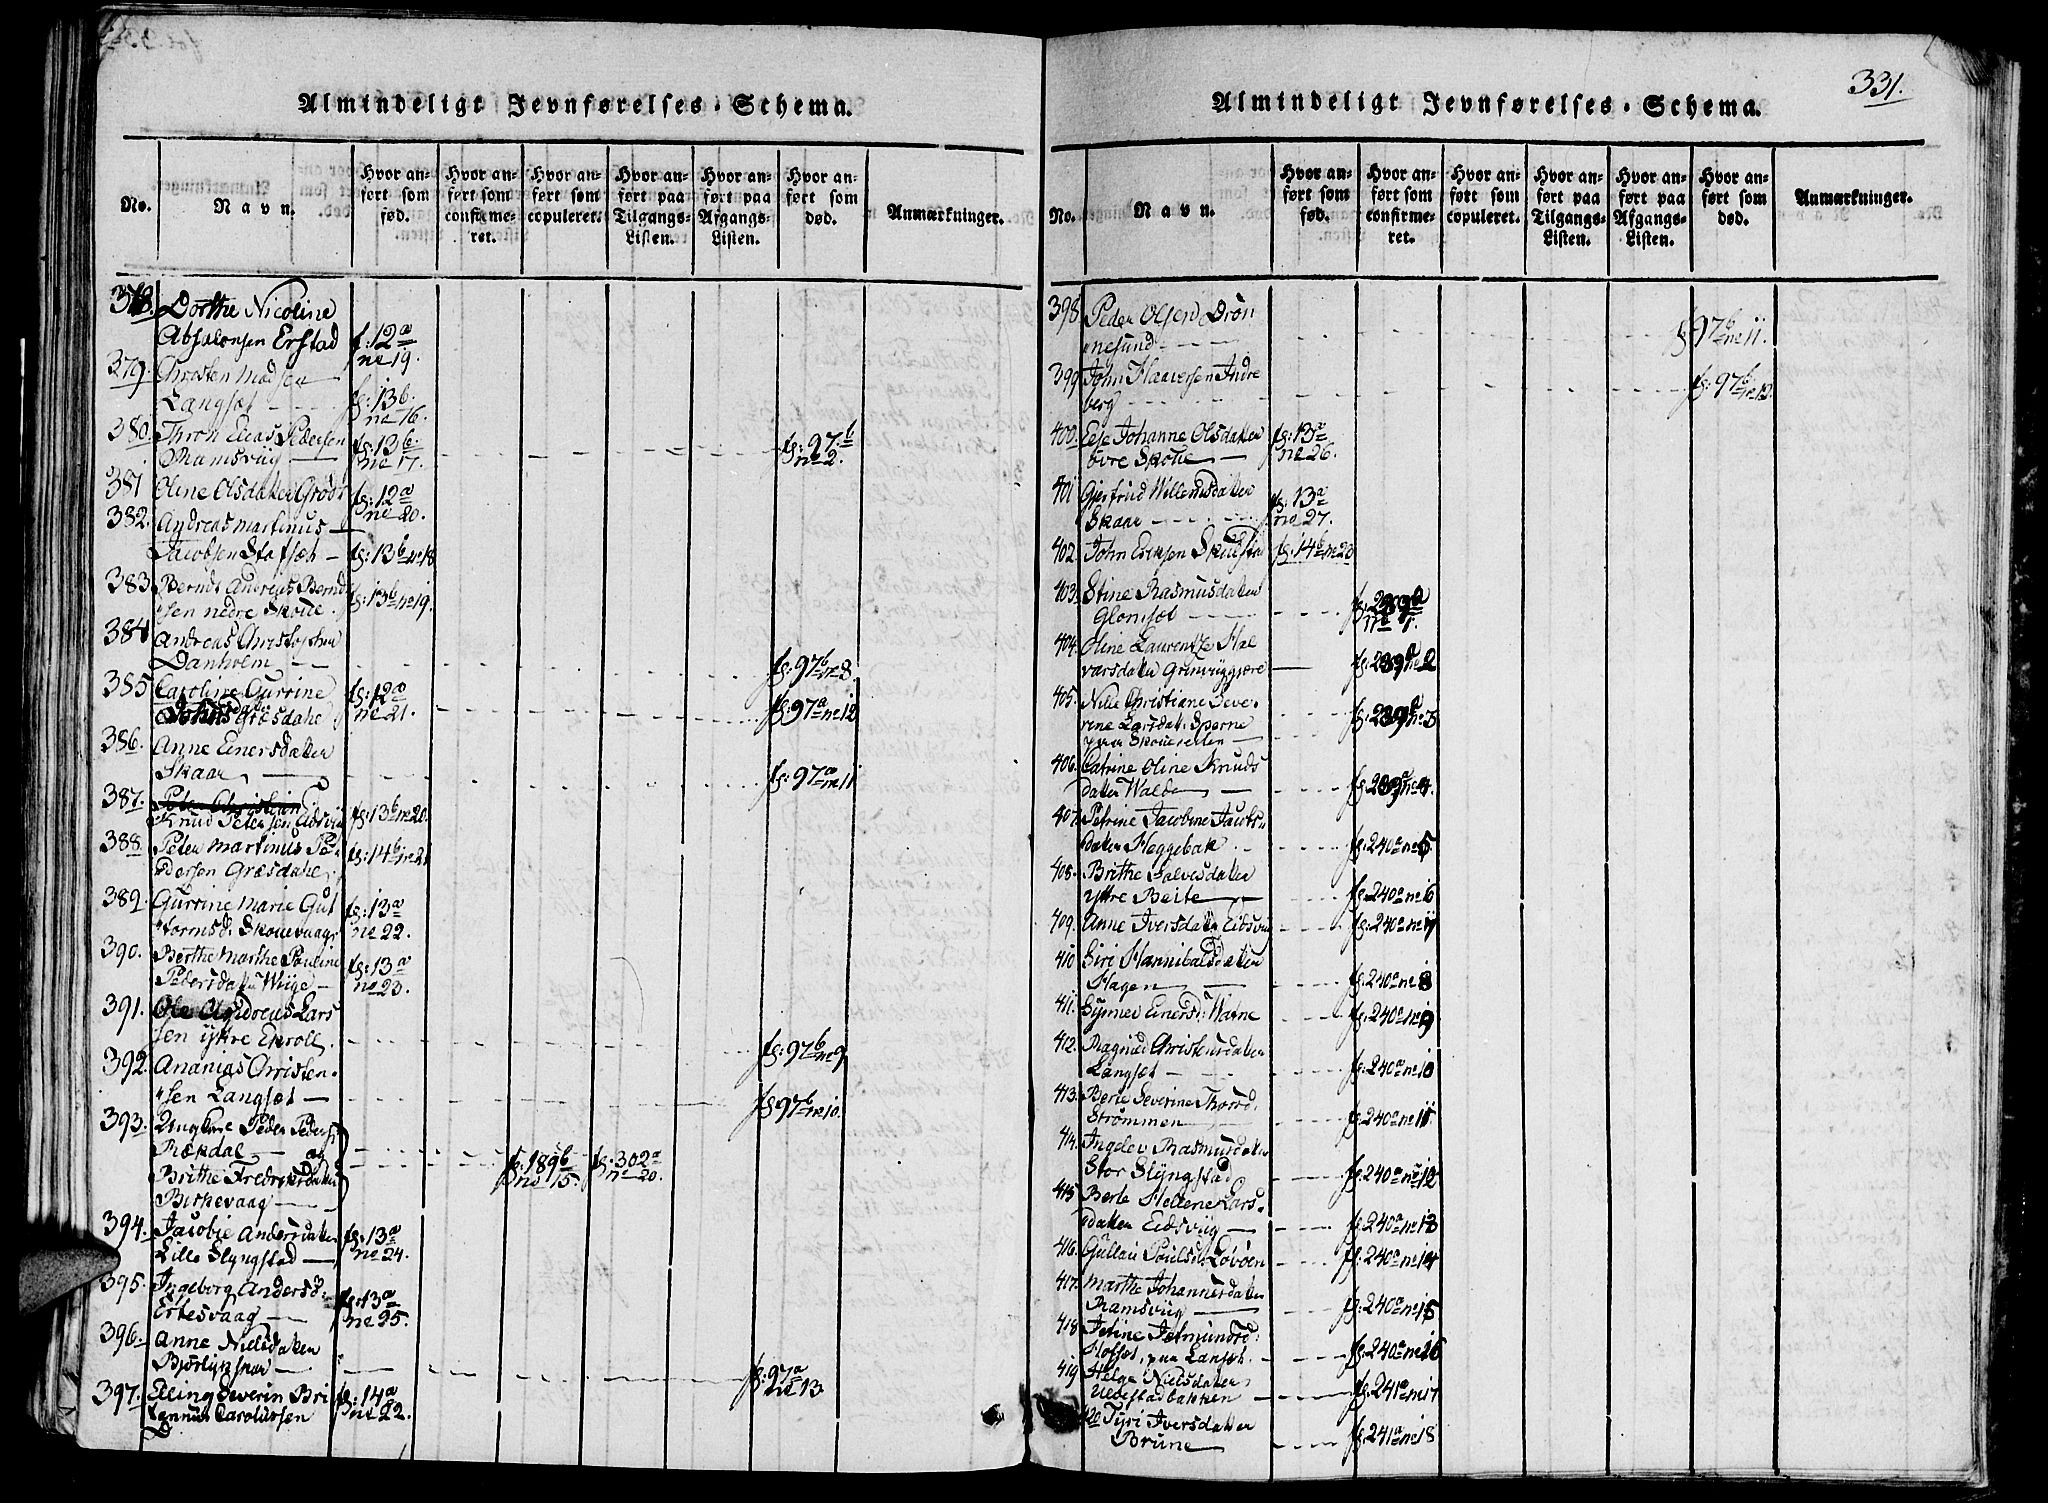 331.
Almindeligt Jevnførelses-Schema.
No.
Navn.
Hvor anført som fød.
Hvor anført som confirmeret.
Hvor anført som copuleret.
Hvor anført paa Tilgangs-Listen.
Hvor anført paa Afgangs-Listen.
Hvor anført som død.
Anmærkninger.
378. Dorthe Nicoline
Absalonsen Erstad f: 12a
no 19.
379. Christen Madsen
Langsæt fg: 13b
no 16.
380. Thron Elias Pedersen fg: 13b fg: 97b
Ramsvüg no 17. no 2.
381 Oline Olsdatter fg: 12a
no 20.
382. Andreas Martinus
Jacobsen Stafsæt fg: 13b no 18
383 Berndt Andreas Bernd
sen nedre Skoue. fg: 13b no 19.
384 Andreas Christophen
Danholm fg: 97b no 8.
385 Caroline Gurrine fg: 12a
Græsdahl no 21. fg: 97a no 12
386. Anne Einersdatter
Skaar fg: 97a no 11
387. Peter Christian
Knud Petersen Eidsvig fg: 13b no 20.
388. Peter Martinus Pe
dersen Græsdahl fg: 14b no 21
389. Gurrine Marie Gut fg: 13a
tormsd: Skouevaagr no 22.
390. Berthe Marthe Pauline fg: 13a
Pedersdatter Wiige no 23.
391. Ole Andreas Lars
sen ÿttre Ekroll. fg: 97b no 9
392. Ananias Christen
sen Langsæt fg 97b no 10.
393. Ungkarl Peder Peders:
Rækdal og fg: 189b fg: 302a
Brithe Fredriksdatter no 15. no 20.
Birkevaag
394. Jacobie Andersdatter fg: 13a
Lille Slyngstad no 24.
395. Ingeborg Andersd: fg: 13a
Eitesvaag no 25.
396. Anne Nielsdatter
Bjørlykhaar fg: 97a
no 13
397. Elling Severin Bri fg: 14a
tannus Carolussen no 22.
Almindeligt Jevnførelses-Schema.
No.
Navn.
Hvor anført som fød.
Hvor anført som confirmeret.
Hvor anført som copuleret.
Hvor anført paa Tilgangs-Listen.
Hvor anført paa Afgangs-Listen.
Hvor anført som død.
Anmærkninger.
398. Peder Olsen Drøn
nesund fg 97b no 11.
399 John Haaversen Indre
berg fg: 97b no 12.
400. Else Johanne Olsdatter fg: 13a
øvre Skoue no 26.
401 Gjertrud Willemsdatter fg: 13a
Skaar no 27.
402. John Eriksen fg: 14b no 23
403. Stine Rasmusdatter fg: 239a
Glomsæt no 1.
404. Oline Laurentze Hal
varsdatter fg: 239a no 2
405. Nille Christiane Seve
rine Larsdat: fg: 239a no 3
406. Catrine Oline Knuds
datter Walde fg: 239a no 4.
407. Petrine Jacobine Jacobs
datter Heggebak fg: 240a no 5
408. Brithe Salvesdatter
ÿttre Beite fg: 240a no 6
409. Anne Iversdatter Eidsvig fg: 240a no 7
410 Siri Hannibalsdatter
Hagen fg: 240a no 8
411. Synner Einersd: Watne fg: 240a no 9
412. Ragnild Christensdatter
Langsæt fg: 240a no 10
413. Berte Severine Thorsd:
Strømmen fg: 240a no 11.
414. Ingdev Rasmusdatter
Stor Slÿngstad fg: 240a no 12
415 Berte Hellene Lars
datter Eidsvüg fg: 240a no 13
416. Gullau Poulsd: Løvøen fg: 240a no 14
417. Marthe Johannesdatter
Ramsvüg fg: 240a no 15
418 Jetmundsd:
Hofset, paa Lanset. fg: 240a no 16
419 Helge Nielsdatter
Uldestadbakken fg: 241a no 17
420 Tyri Iversdatter
Brune fg: 241a no 18